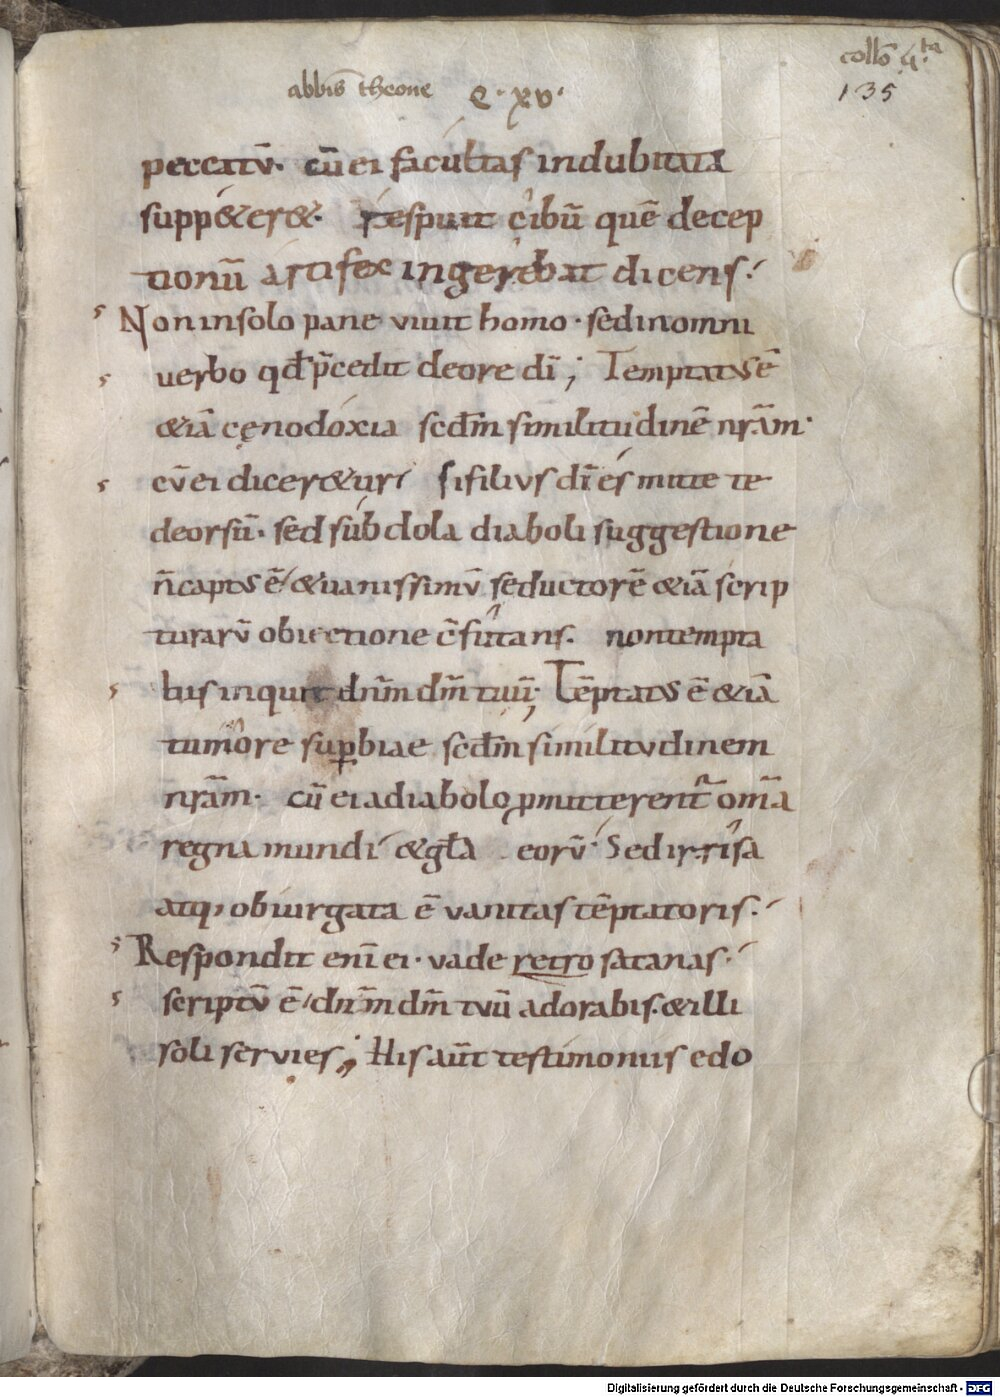 collõ 4.ta
135
abbis̃ theone C · xv ·
peccatū. cū ei facultas indubitata
supp&er&. respuit cibū quē decep
tionū artifex ingerebat dicens.
Non in solo pane vivit homo · sed in omni
verbo qđ p̄cedit de ore dī ; Temptatus ē
&iā cęnodoxia scđm similitudinē nr̄am·
cū ei dicer&ur si filius dī es mitte te
deorsū. sed subdola diaboli suggestione
n̄ captus ē / & vanissimū seductorē &iā scrip
turarū obiectione c̄futans. non tempta
bis inquit dn̄m dm̄ tuū ; Tēptatus ē &iā
tumore sup̱biae scđm similitudinem
nr̄am. cū ei a diabolo p̱mitterent̄ om̄a
regna mundi & gl̄a eorū Sed irrisa
atq; obiurgata ē vanitas tēptatoris.
Respondit enī ei · vade retro satanas.
scriptū ē / dn̄m dm̄ tuū adorabis. & illi
soli servies ; His aūt testimoniis edo
Digitalisierung gefördert durch die Deutsche Forschungsgemeinschaft - DFG